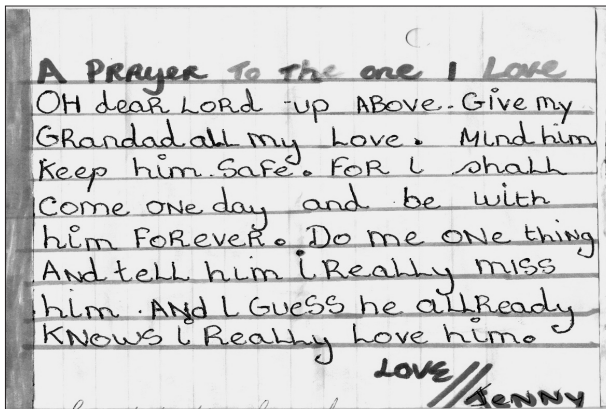 A PRAyer To The one I Love
OH deaR LoRd up ABove. Give my
GRandad all my Love. Mind him
Keep him safe. FOR i shall
Come one day and be with
him FoRever. Do me one thing
And tell him i Really miss
him. And I Guess he allReady
Knows i Really Love him.
Love
Jenny